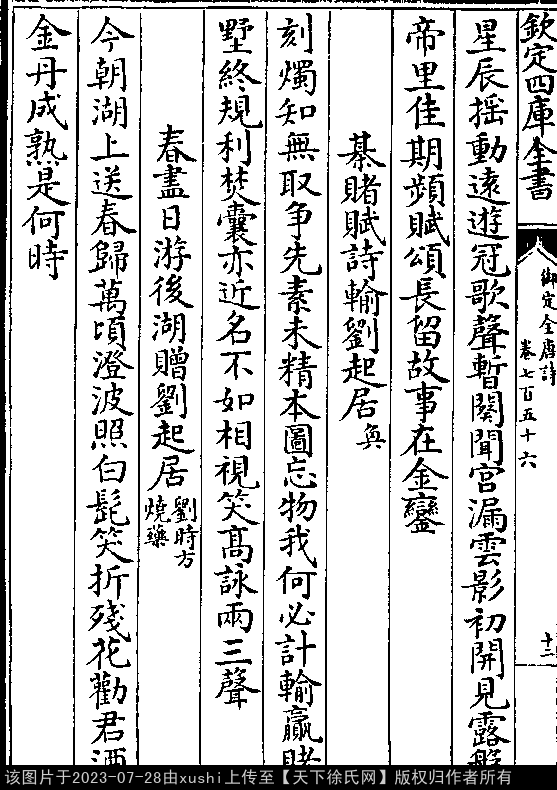 欽定四庫全書
御定全唐詩
卷七百五十六
十二
星辰揺動逺遊冠歌聲暫闋聞宮漏雲影初開見露盤
帝里佳期頻賦頌長留故事在金鑾
棊賭賦詩輸劉起居奐
刻燭知無取爭先素未精本圖忘物我何必計輸贏賭
墅終規利焚囊亦近名不如相視笑髙詠兩三聲
春盡日游後湖贈劉起居劉時方燒藥
今朝湖上送春歸萬頃澄波照白髭笑折殘花勸君酒
金丹成熟是何時
该图片于2023-07-28由xushi上传至【天下徐氏网】版权归作者所有